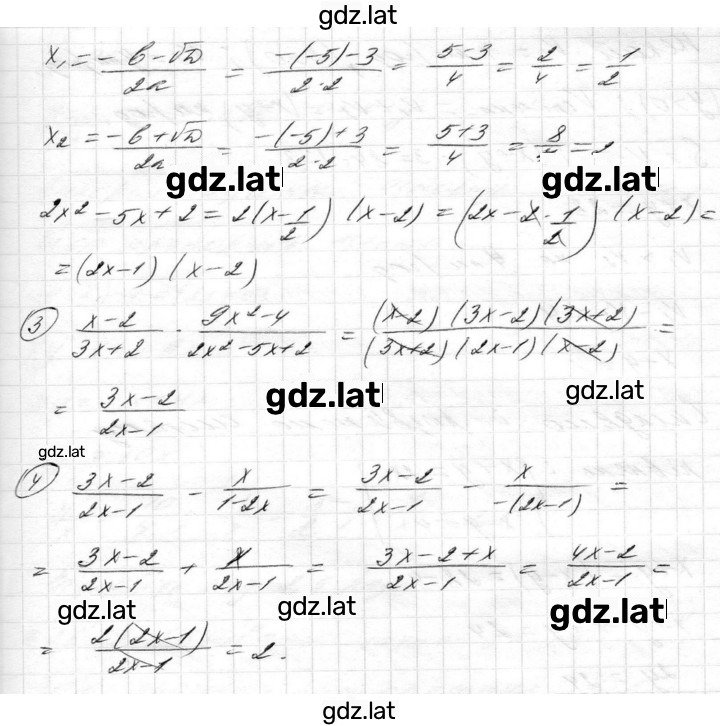 gdz.lat
x₁ = (-b - √D)/(2a) = (-(-5) - 3)/(2·2) = (5-3)/4 = 2/4 = 1/2
x₂ = (-b + √D)/(2a) = (-(-5) + 3)/(2·2) = (5+3)/4 = 8/4 = 2
gdz.lat gdz.lat
2x² - 5x + 2 = 2(x - 1/2)(x - 2) = (2x - 2·1/2)(x - 2) =
= (2x-1)(x-2)
③ (x-2)/(3x+2) · (9x²-4)/(2x²-5x+2) = ((x-2)(3x-2)(3x+2))/((3x+2)(2x-1)(x-2)) =
= (3x-2)/(2x-1)
gdz.lat gdz.lat
gdz.lat
④ (3x-2)/(2x-1) - x/(1-2x) = (3x-2)/(2x-1) - x/(-(2x-1)) =
= (3x-2)/(2x-1) + x/(2x-1) = (3x-2+x)/(2x-1) = (4x-2)/(2x-1) =
gdz.lat gdz.lat gdz.lat
= (2(2x-1))/(2x-1) = 2.
gdz.lat